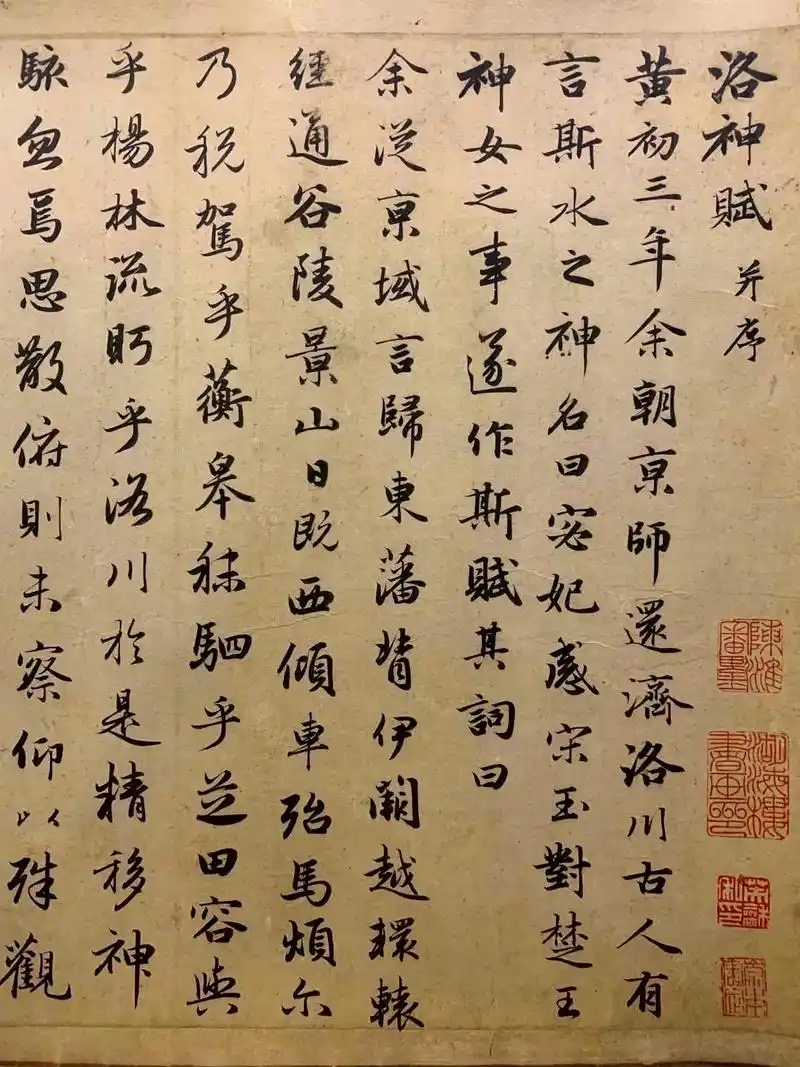 洛神賦 并序
黄初三年余朝京師還濟洛川古人有
言斯水之神名曰宓妃感宋玉對楚王
神女之事遂作斯賦其詞曰
余從京域言歸東藩背伊闕越轘轅
經通谷陵景山日既西傾車殆馬煩尔
乃税駕乎蘅皋秣駟乎芝田容與
乎楊林流眄乎洛川於是精移神
駭忽焉思散俯則未察仰以殊觀